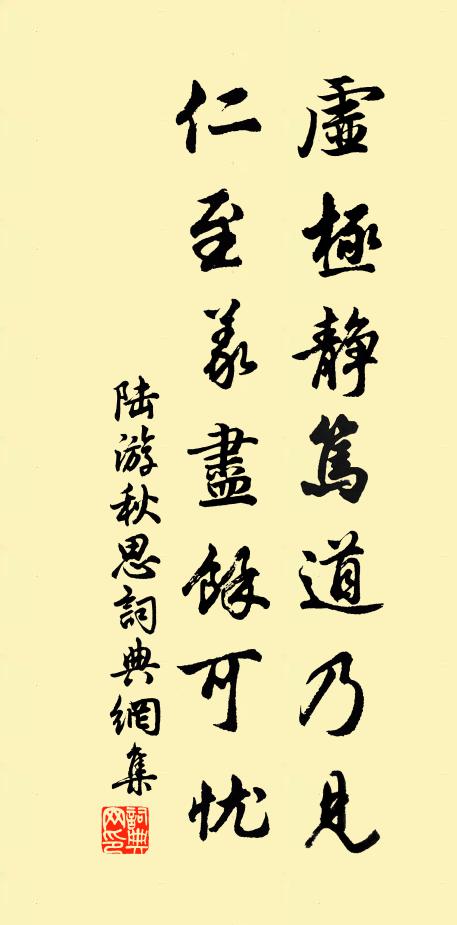 虛極靜篤道乃見
仁至義盡餘可忧
陸游秋思詞典網集
詞典
网印